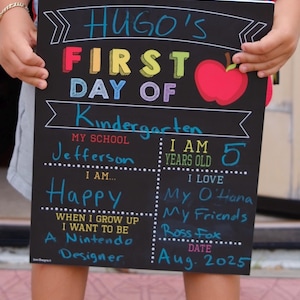 HUGO'S
FIRST
DAY OF
Kindergarten
MY SCHOOL
Jefferson
I AM
YEARS OLD 5
I AM...
Happy
I LOVE
My O'Hana
My Friends
Ross Fox
WHEN I GROW UP
I WANT TO BE
A Nintendo
Designer
DATE
Aug. 2025